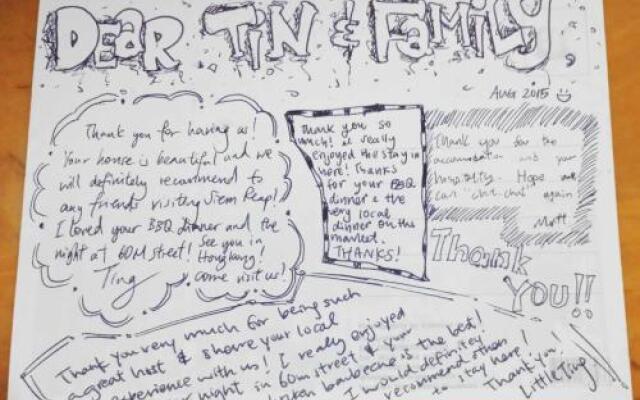 DEAR TIN & FAMILY
AUG 2015
Thank you for having us!
Your house is beautiful and we
will definitely recommend to
any friends visiting Siem Reap!
I loved your BBQ dinner and the
night at 60M street! See you in
Hong Kong!
Ting come visit us!
Thank you so
much! I really
enjoyed the stay in
here! Thanks
for your BBQ
dinner & the
very local
dinner on the
market.
THANKS!
Thank you for the
accommodation and your
hospitality. Hope we
can "chit-chat" again
Matt
Thank
You!!
Thank you very much for being such
a great host & share your local
experience with us! I really enjoyed
our night in 60m street & your
chicken barbecue is the best!
I would definitely
recommend others
to stay here!
Thank you!
Little Ting